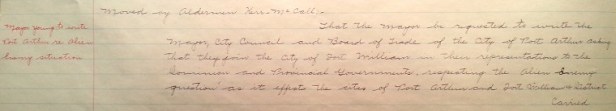 Moved by Aldermen Kerr-McCall.
Mayor going to write
Port Arthur re Alien
Enemy situation
That the Mayor be requested to write the
Mayor, City Council and Board of Trade of the City of Port Arthur asking
that they join the City of Fort William in their representations to the
Dominion and Provincial Governments, respecting the Alien Enemy
question as it effects the cities of Port Arthur and Fort William & District
Carried